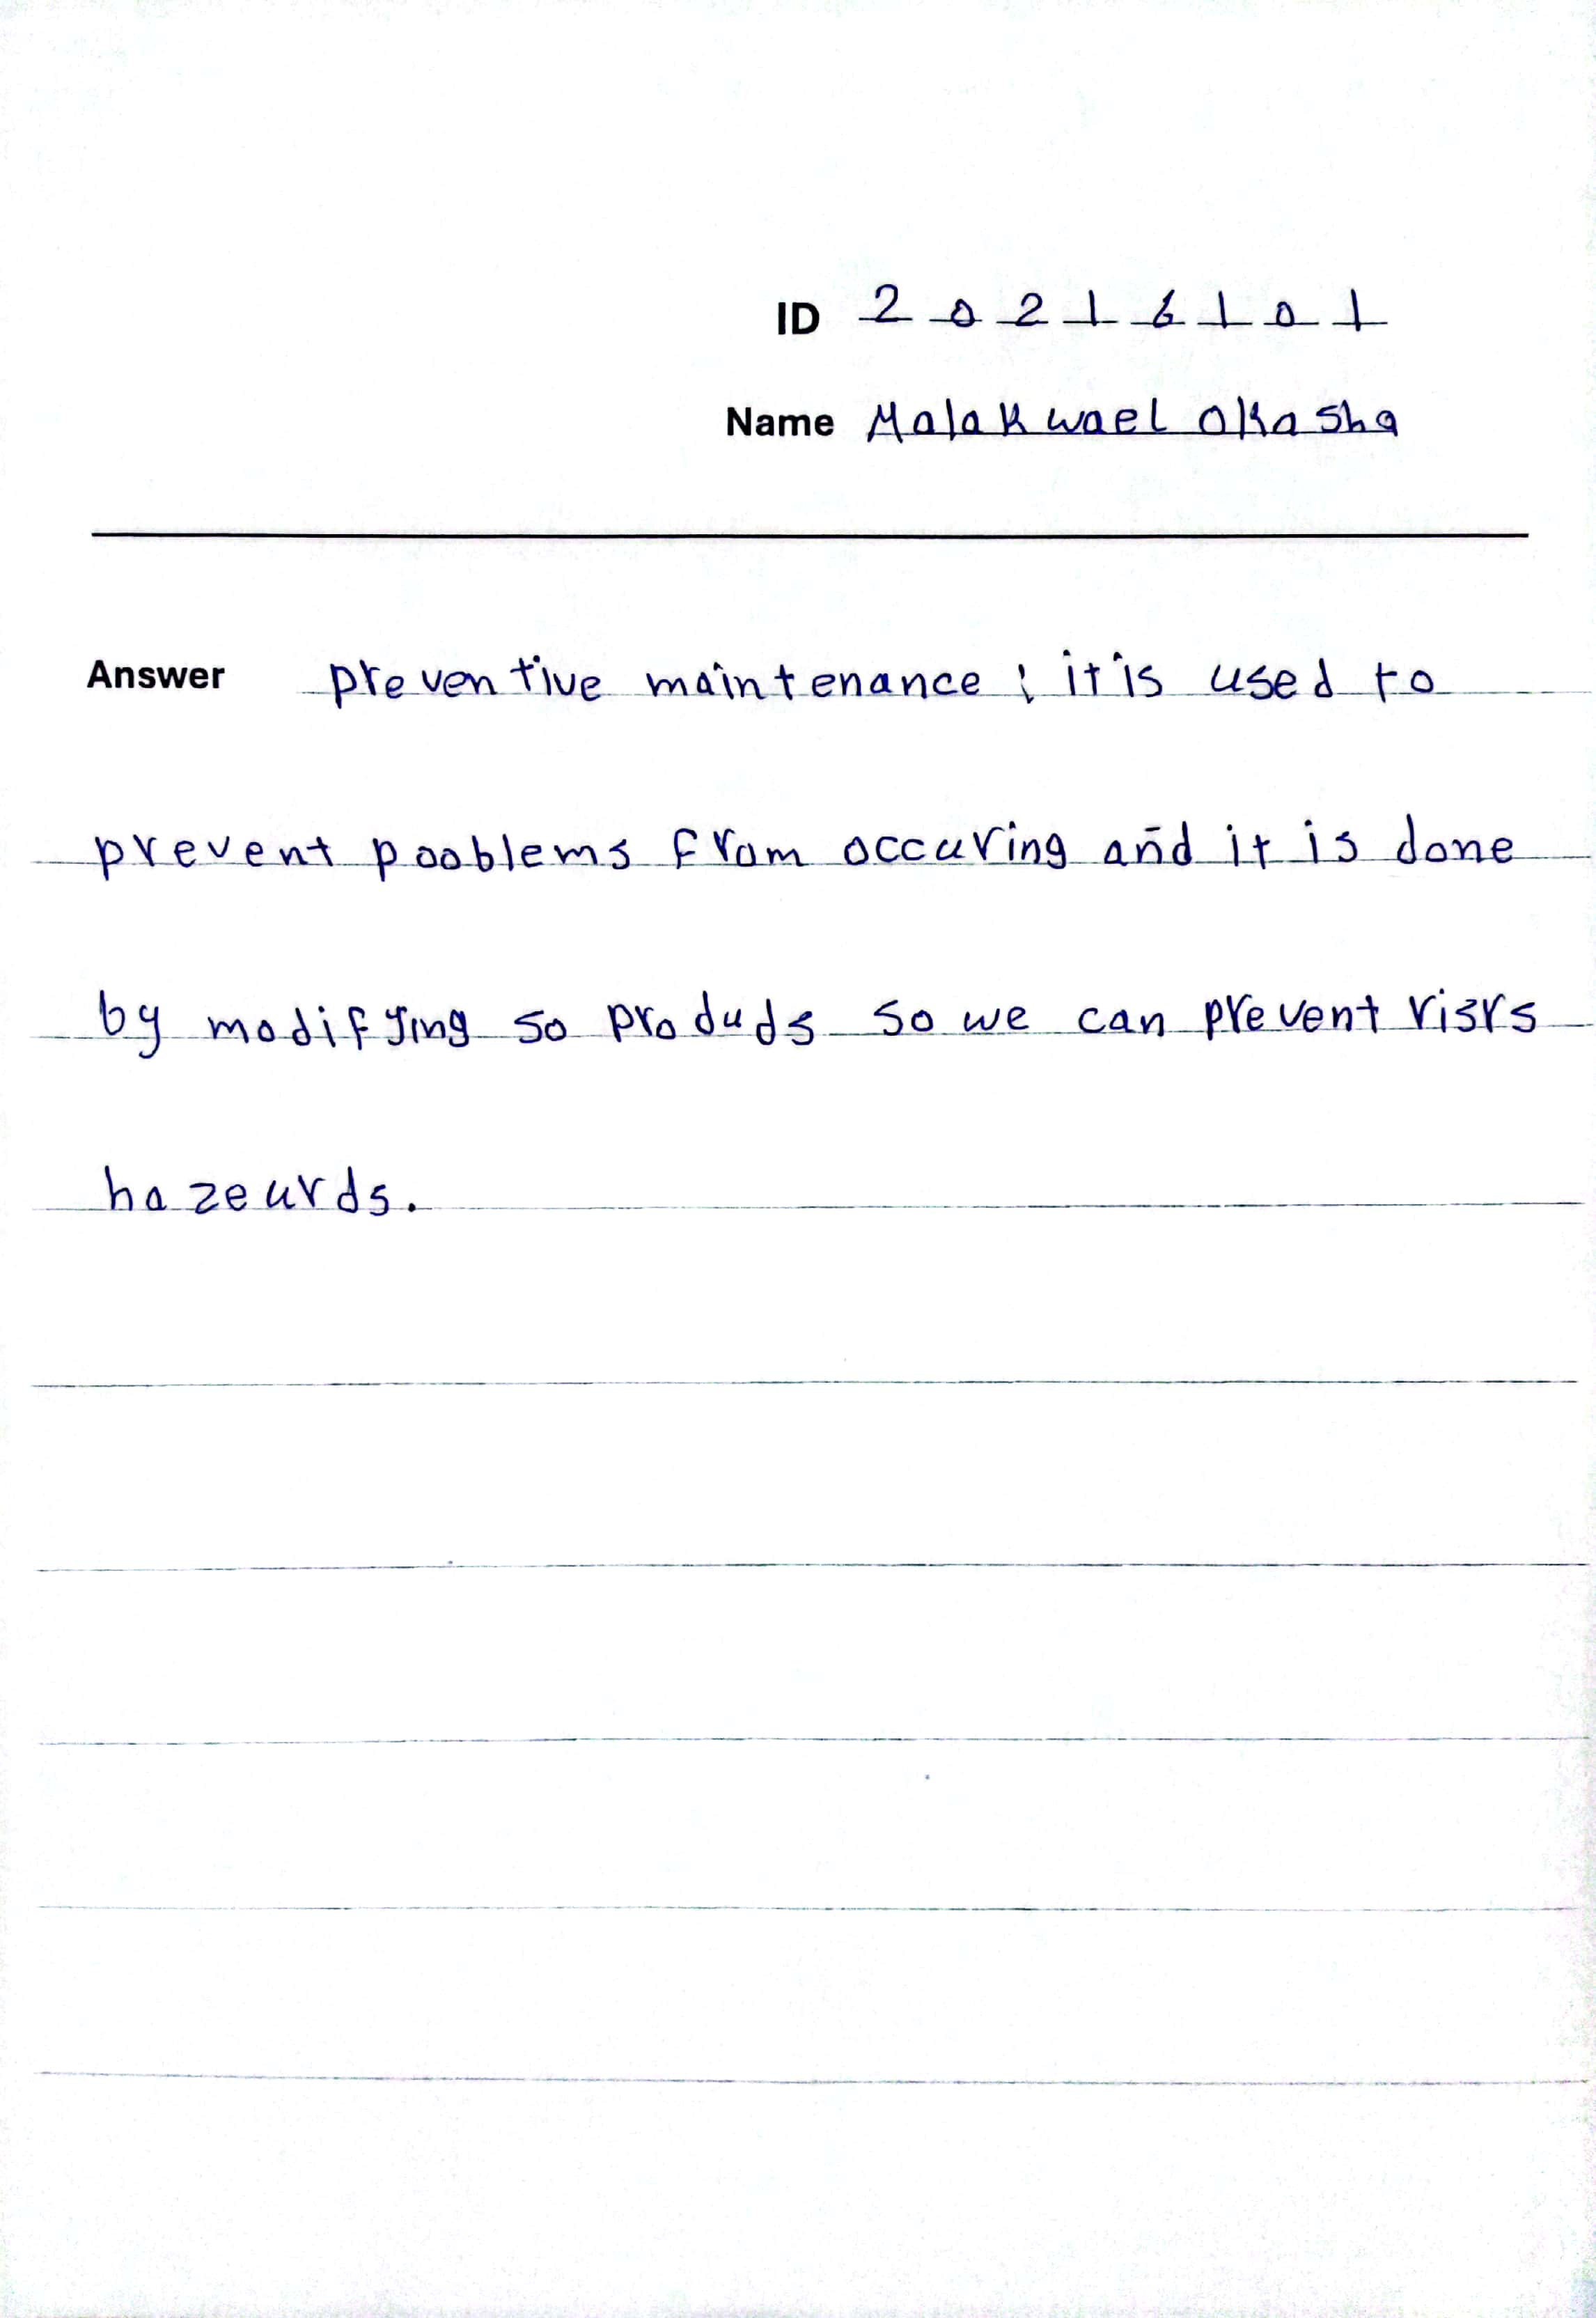 ID 20216101
Name Malak wael okasha
Answer preventive maintenance : it is used to
prevent pooblems from occuring and it is done
by modifying so produds so we can prevent risrs
hazeurds.